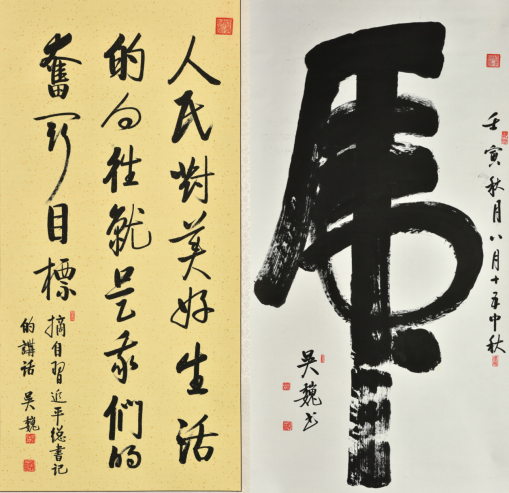 人民對美好生活
的向往就是我們的
奮鬥目標
摘自習近平总書記
的講话 吴巍
虎
壬寅秋月八月十五中秋
吴巍书